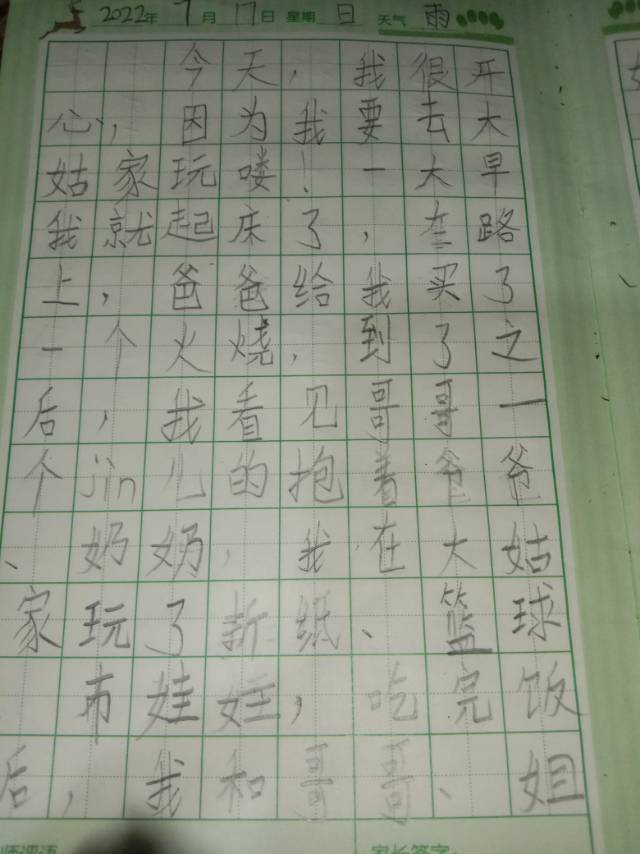 2022年7月17日 星期日 天气 雨
今天，我很开
心，因为我要去大
姑家玩喽！一大早
我就起床了，在路
上，爸爸给我买了
一个火烧，到了之
后，我看见哥哥一
个jin儿的抱着爷爷
、奶奶，我在大姑
家玩了折纸、篮球
布娃娃，吃完饭
后，我和哥哥、姐
师评语
家长签字：